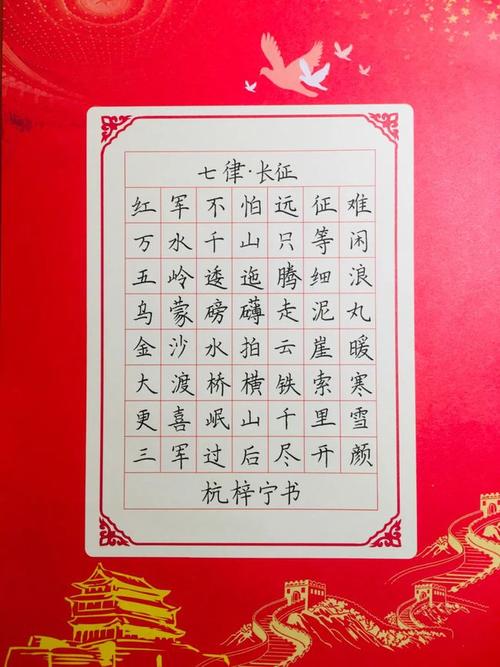 七律·长征
红军不怕远征难
万水千山只等闲
五岭逶迤腾细浪
乌蒙磅礴走泥丸
金沙水拍云崖暖
大渡桥横铁索寒
更喜岷山千里雪
三军过后尽开颜
杭梓宁书